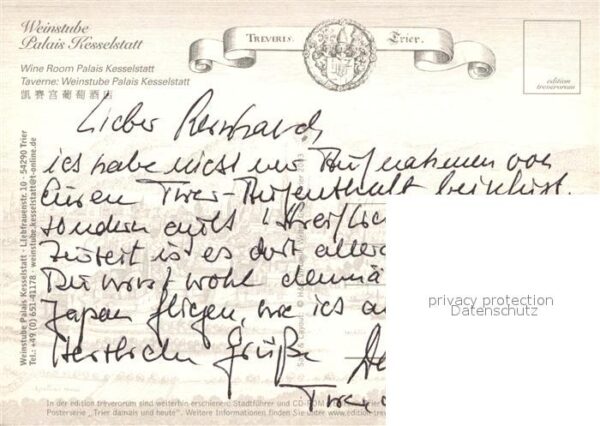 Weinstube
Palais Kesselstatt
TREVERIS
Trier.
Wine Room Palais Kesselstatt
Taverne: Weinstube Palais Kesselstatt
凯赛宫葡萄酒店
edition
treverorum
Lieber Reinhard,
ich habe nicht nur Aufnahmen von
Eurem Trier-Aufenthalt
sondern auch
Zuletzt ist es dort
Du wirst wohl
Japan fliegen, wie ich
Herzliche Grüße
Weinstube Palais Kesselstatt · Liebfrauenstr. 10 · 54290 Trier
Tel.: +49 (0) 651-41178 · weinstube.kesselstatt@t-online.de
privacy protection
Datenschutz
In der edition treverorum sind weiterhin erschienen: Stadtführer und CD-ROM
Posterserie „Trier damals und heute". Weitere Informationen finden Sie unter www.edition-trev